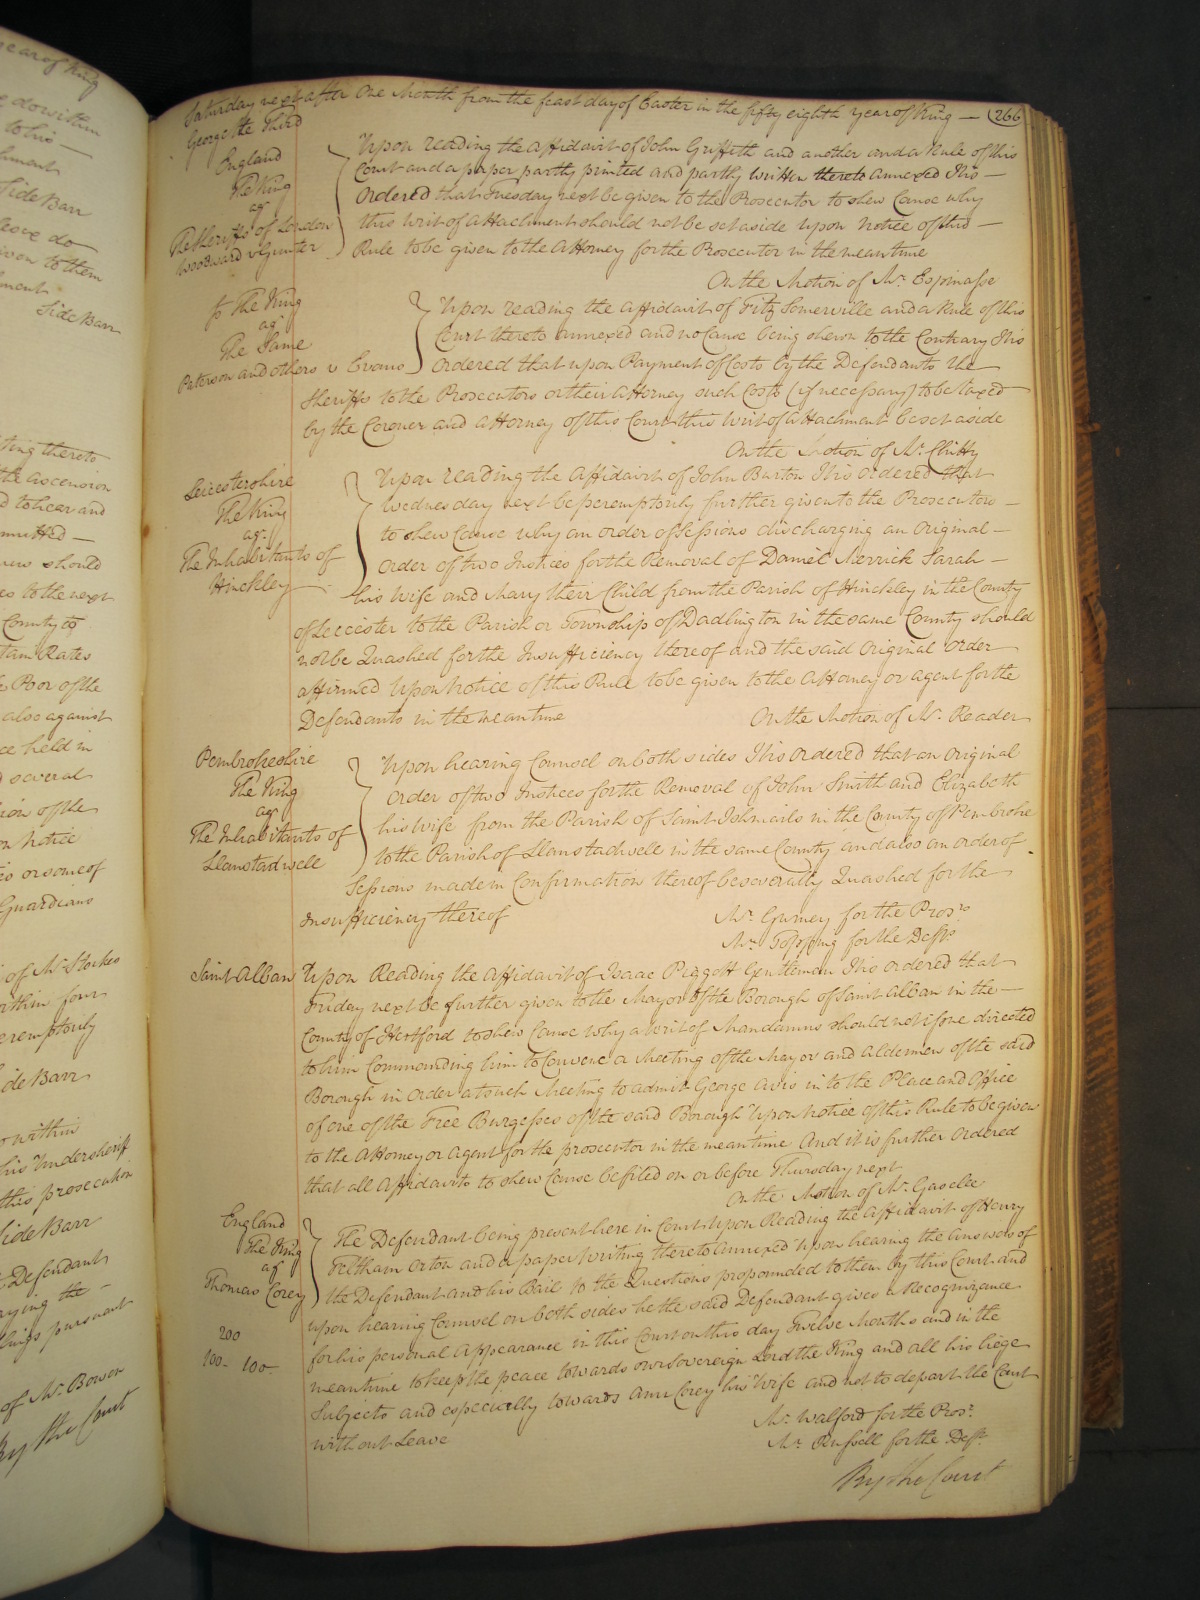 Saturday next after One Month from the feast day of Easter in the fifty eighth year of King — 266
George the Third
England
The King
agt
The Sheriffs of London
Woodward v Gunter
Upon reading the Affidavit of John Griffith and another and a Rule of this
Court and a paper partly printed and partly written thereto annexed It is —
Ordered that Tuesday next be given to the Prosecutor to shew Cause why
this writ of Attachment should not be set aside upon notice of this —
Rule to be given to the Attorney for the Prosecutor in the meantime
On the Motion of Mr. Espinasse
The King
agt
The Same
Paterson and others v Evans
Upon reading the Affidavit of Fitz Somerville and a Rule of this
Court thereto annexed and no Cause being shewn to the Contrary It is
Ordered that upon Payment of Costs by the Defendants the
Sheriffs to the Prosecutors or their Attorney such Costs (if necessary) to be taxed
by the Coroner and Attorney of this Court this writ of Attachment be set aside
On the Motion of Mr. Chitty
Leicestershire
The King
agt
The Inhabitants of
Hinckley
Upon reading the Affidavit of John Burton It is Ordered that
Wednesday next be peremptorily further given to the Prosecutors —
to shew Cause why an order of Sessions discharging an Original —
Order of two Justices for the Removal of Daniel Merrick Sarah —
his Wife and Mary their Child from the Parish of Hinckley in the County
of Leicester to the Parish or Township of Dadlington in the same County should
not be Quashed for the Insufficiency thereof and the said Original order
affirmed Upon Notice of this Rule to be given to the Attorney or agent for the
Defendants in the meantime
On the Motion of Mr. Reader
Pembrokeshire
The King
agt
The Inhabitants of
Llanstadwell
Upon hearing Counsel on both sides It is Ordered that an Original
Order of two Justices for the Removal of John Smith and Elizabeth
his Wife from the Parish of Saint Ishmails in the County of Pembroke
to the Parish of Llanstadwell in the same County and also an order of
Sessions made in Confirmation thereof be severally Quashed for the
Insufficiency thereof
Mr. Gurney for the Prosr.
Mr. Topping for the Defts.
Saint Alban
Upon Reading the Affidavit of Isaac Piggott Gentleman It is ordered that
Friday next be further given to the Mayor of the Borough of Saint Alban in the —
County of Hertford to shew Cause why a Writ of Mandamus should not issue directed
to him Commanding him to Convene a Meeting of the Mayor and Aldermen of the said
Borough in Order at such Meeting to admit George Avis into the Place and Office
of one of the Free Burgesses of the said Borough Upon notice of this Rule to be given
to the Attorney or Agent for the prosecutor in the mean time And it is further Ordered
that all Affidavits to shew Cause be filed on or before Thursday next
On the Motion of Mr. Gaselee
England
The King
agt
Thomas Corey
200
100 – 100 –
The Defendant being present here in Court Upon Reading the Affidavit of Henry
Feltham Orton and a paper Writing thereto Annexed Upon hearing the Answers of
the Defendant and his Bail to the Questions propounded to them by this Court and
upon hearing Counsel on both sides he the said Defendant gives a Recognizance
for his personal Appearance in this Court on this day Twelve Months and in the
meantime to keep the peace towards our Sovereign Lord the King and all his liege
Subjects and especially towards Ann Corey his Wife and not to depart the Court
without Leave
Mr. Walford for the Prosr.
Mr. Russell for the Deft.
By the Court